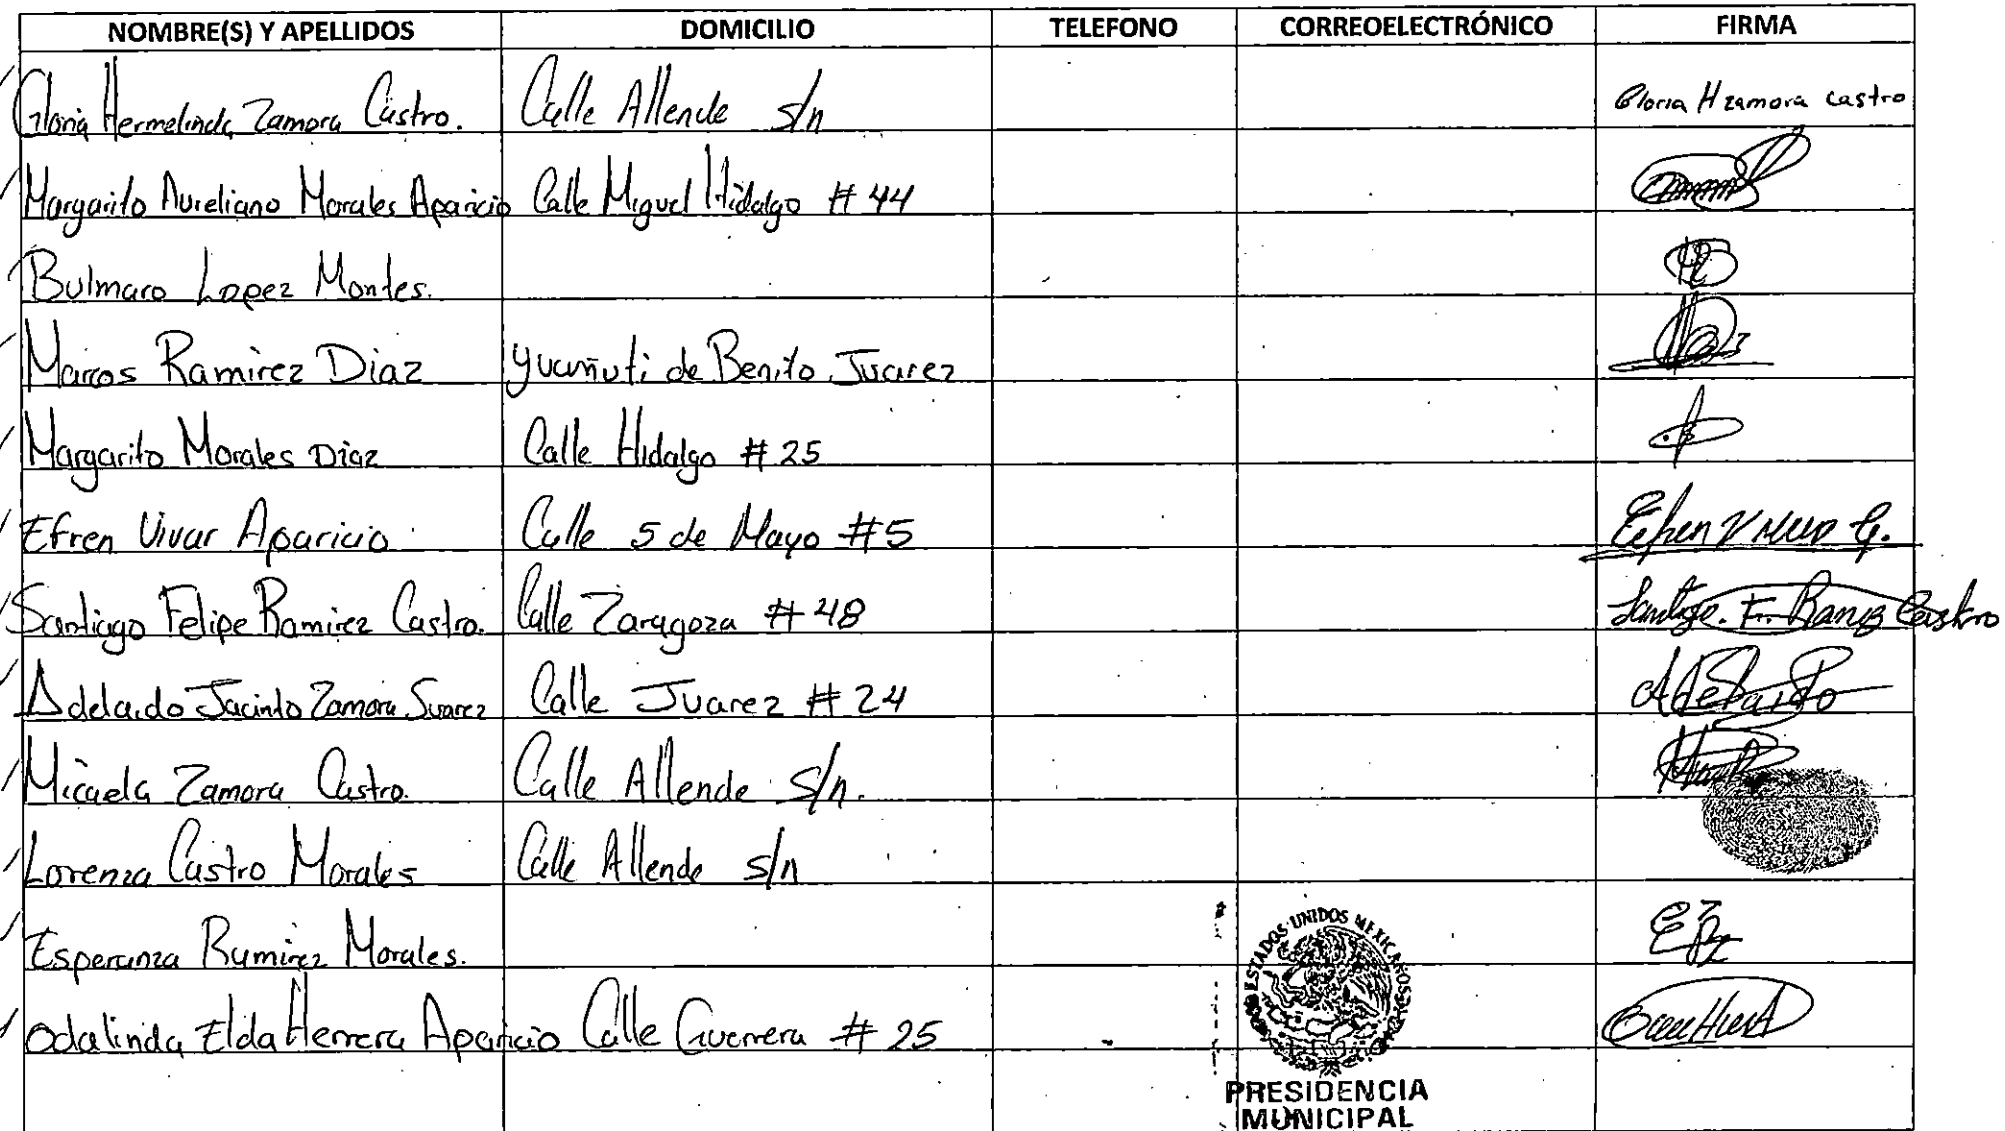 NOMBRE(S) Y APELLIDOS DOMICILIO TELEFONO CORREOELECTRÓNICO FIRMA
Gloria Hermelinda Zamora Castro. Calle Allende s/n Gloria H zamora castro
Margarito Aureliano Morales Aparicio Calle Miguel Hidalgo # 44
Bulmaro Lopez Montes.
Marcos Ramirez Diaz yucuñuti de Benito Juarez
Margarito Morales Diaz Calle Hidalgo # 25
Efren Vivar Aparicio Calle 5 de Mayo #5 Efren
Santiago Felipe Ramirez Castro. Calle Zaragoza # 48 Santiago. F. Castro
Adelaido Jacinto Zamora Suarez Calle Juarez # 24 Adelaido
Micaela Zamora Castro. Calle Allende s/n.
Lorenza Castro Morales Calle Allende s/n
Esperanza Ramirez Morales.
Odalinda Elda Herrera Aparicio Calle Guerrera # 25
ESTADOS UNIDOS MEXICANOS
PRESIDENCIA
MUNICIPAL